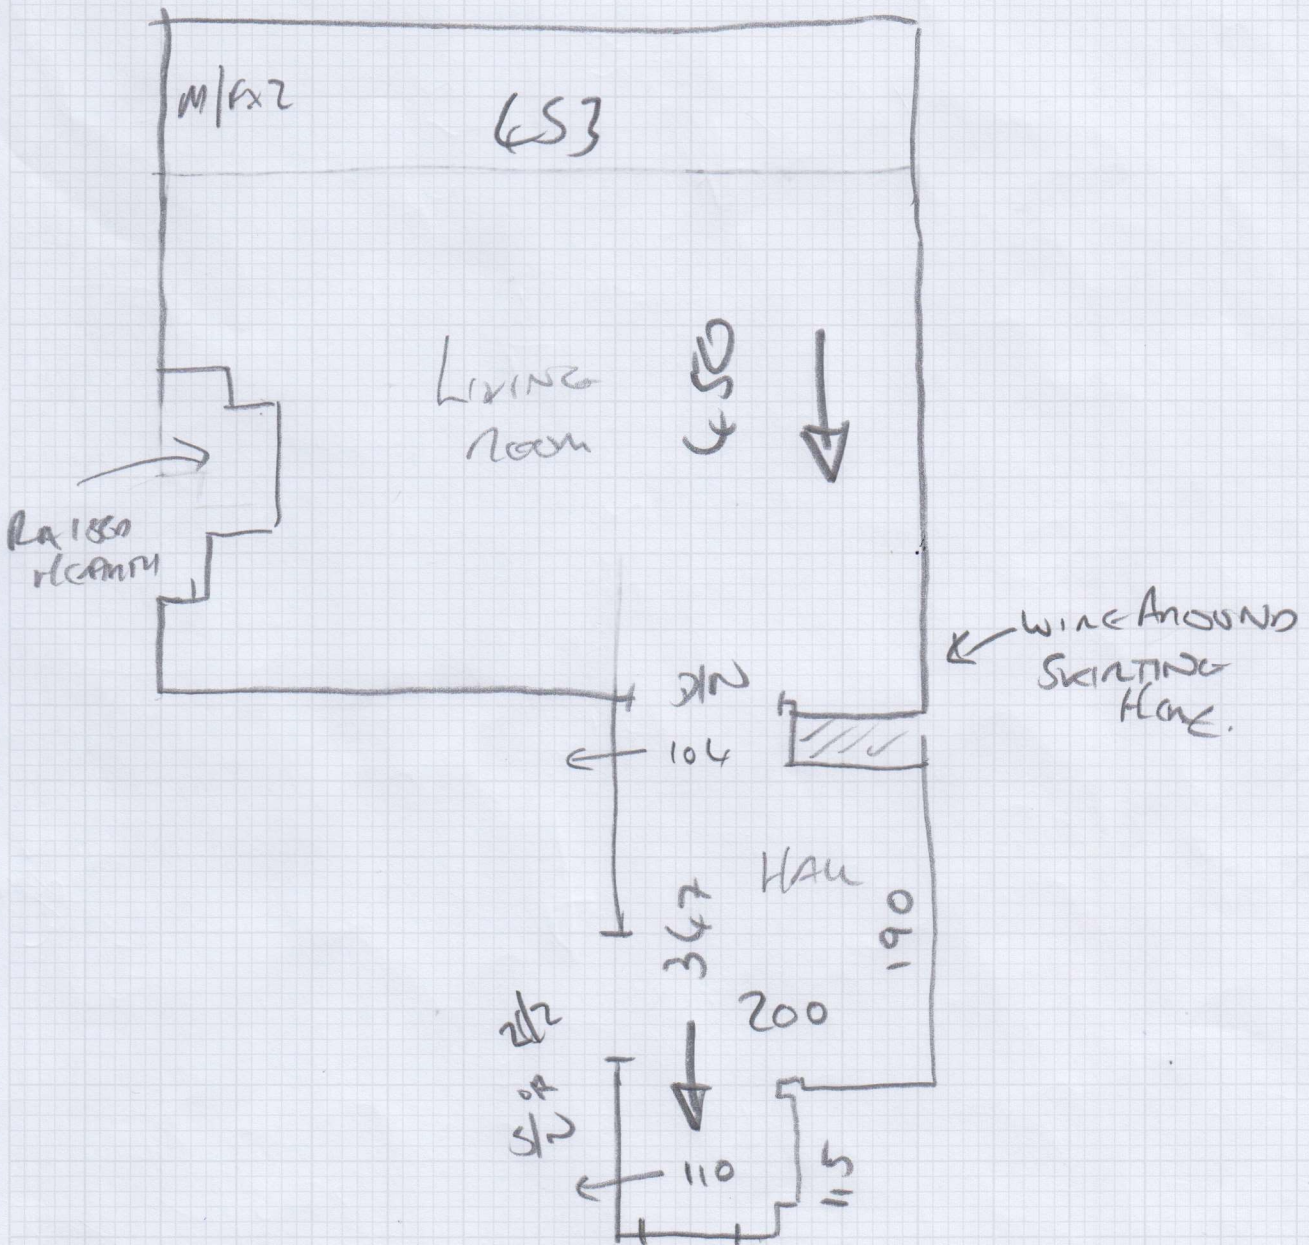 M/Fx2
453
LIVING
ROOM
450
RAISED
HEARTH
WIRE AROUND
SKIRTING
HERE.
D/N
104
HALL
347
190
200
2/2
OR
110
115